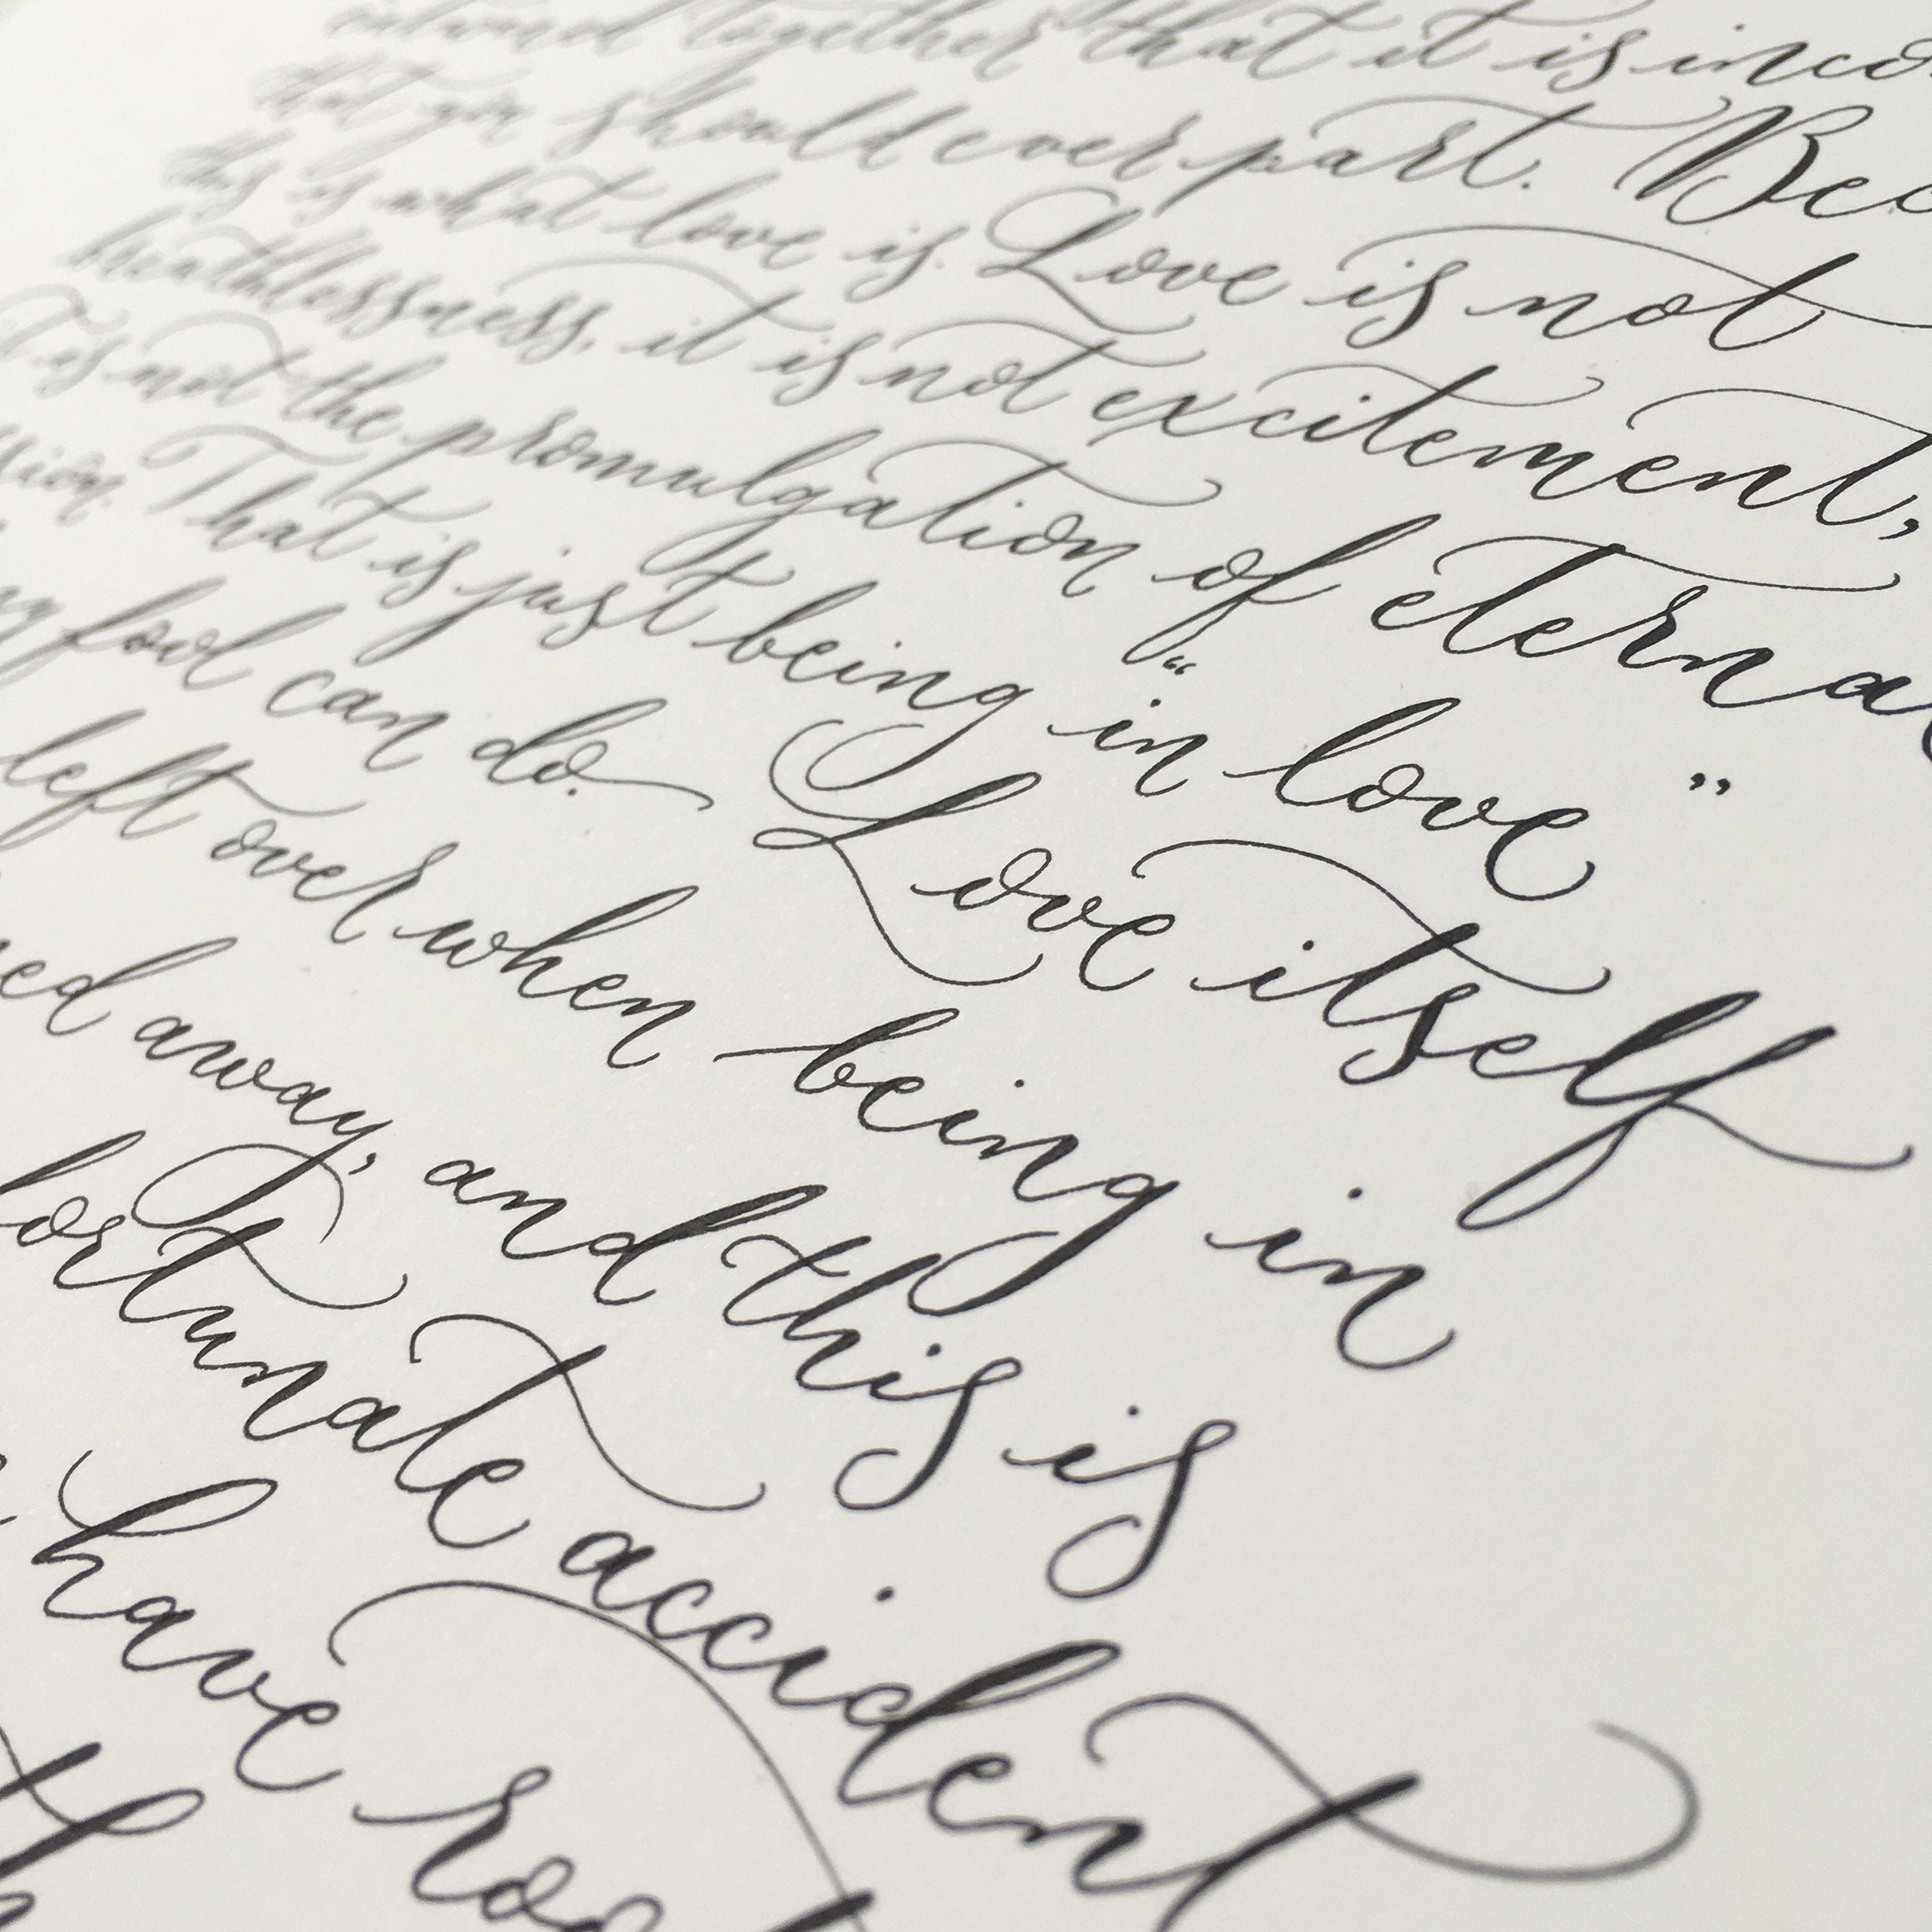 together that it is inco
that you should ever part. Bec
this is what love is. Love is not
breathlessness, it is not excitement,
it is not the promulgation of eterna
ssion. That is just being "in love"
ny fool can do. Love itself
left over when being in
ned away, and this is
fortunate accident
have roo